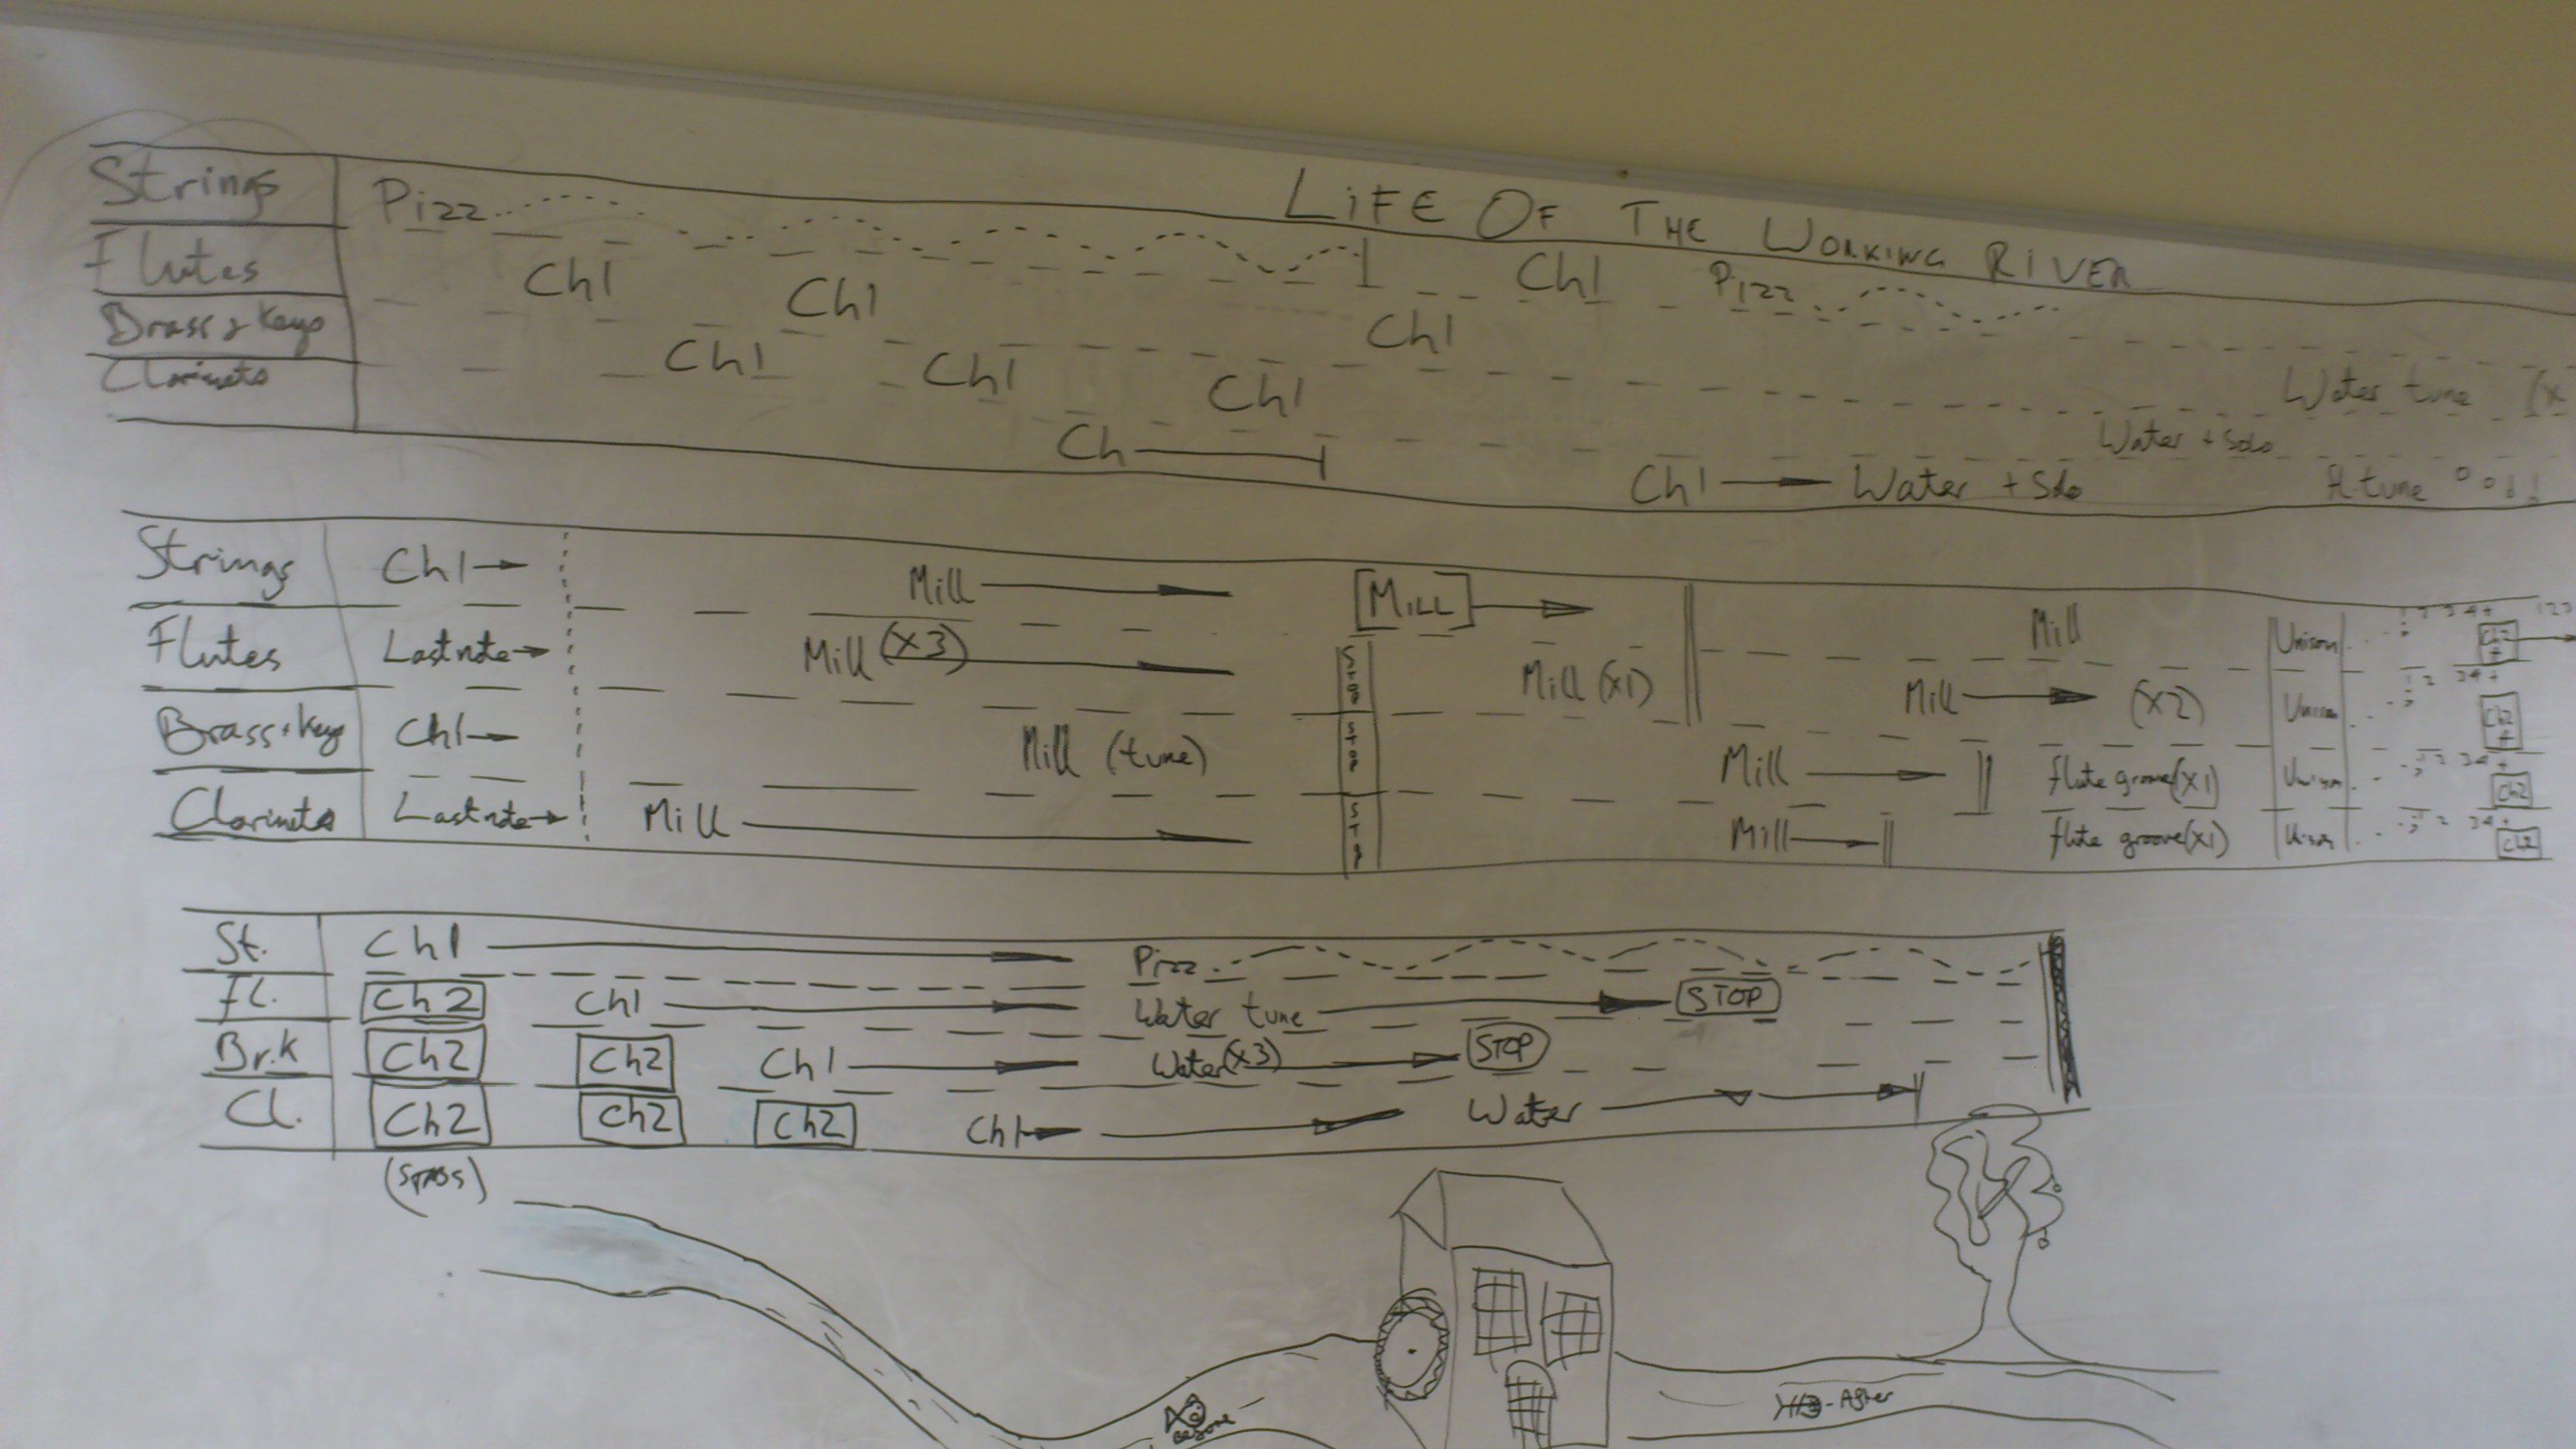 LIFE OF THE WORKING RIVER
Strings Pizz Ch1 Pizz
Flutes Ch1 Ch1 Ch1 Water tune
Brass + Keys Ch1 Ch1 Ch1 Water + Solo
Clarinets Ch Ch1 Water + Solo fl. tune
Strings Ch1 Mill [MILL] Mill Unison 1 2 3 4 + Ch2 + 1 2 3
Flutes Last note Mill (x3) STOP Mill (x1) Mill (x2) Unison 1 2 3 4 + Ch2 +
Brass + Keys Ch1 Mill (tune) STOP Mill flute groove (x1) Unison 1 2 3 4 + Ch2
Clarinets Last note Mill STOP Mill flute groove (x1) Unison 1 2 3 4 + Ch2
St. Ch1 Pizz
FL. Ch2 Ch1 Water tune STOP
Br.K Ch2 Ch2 Ch1 Water (x3) STOP
Cl. Ch2 Ch2 Ch2 Ch1 Water
(STABS)
Before
- After